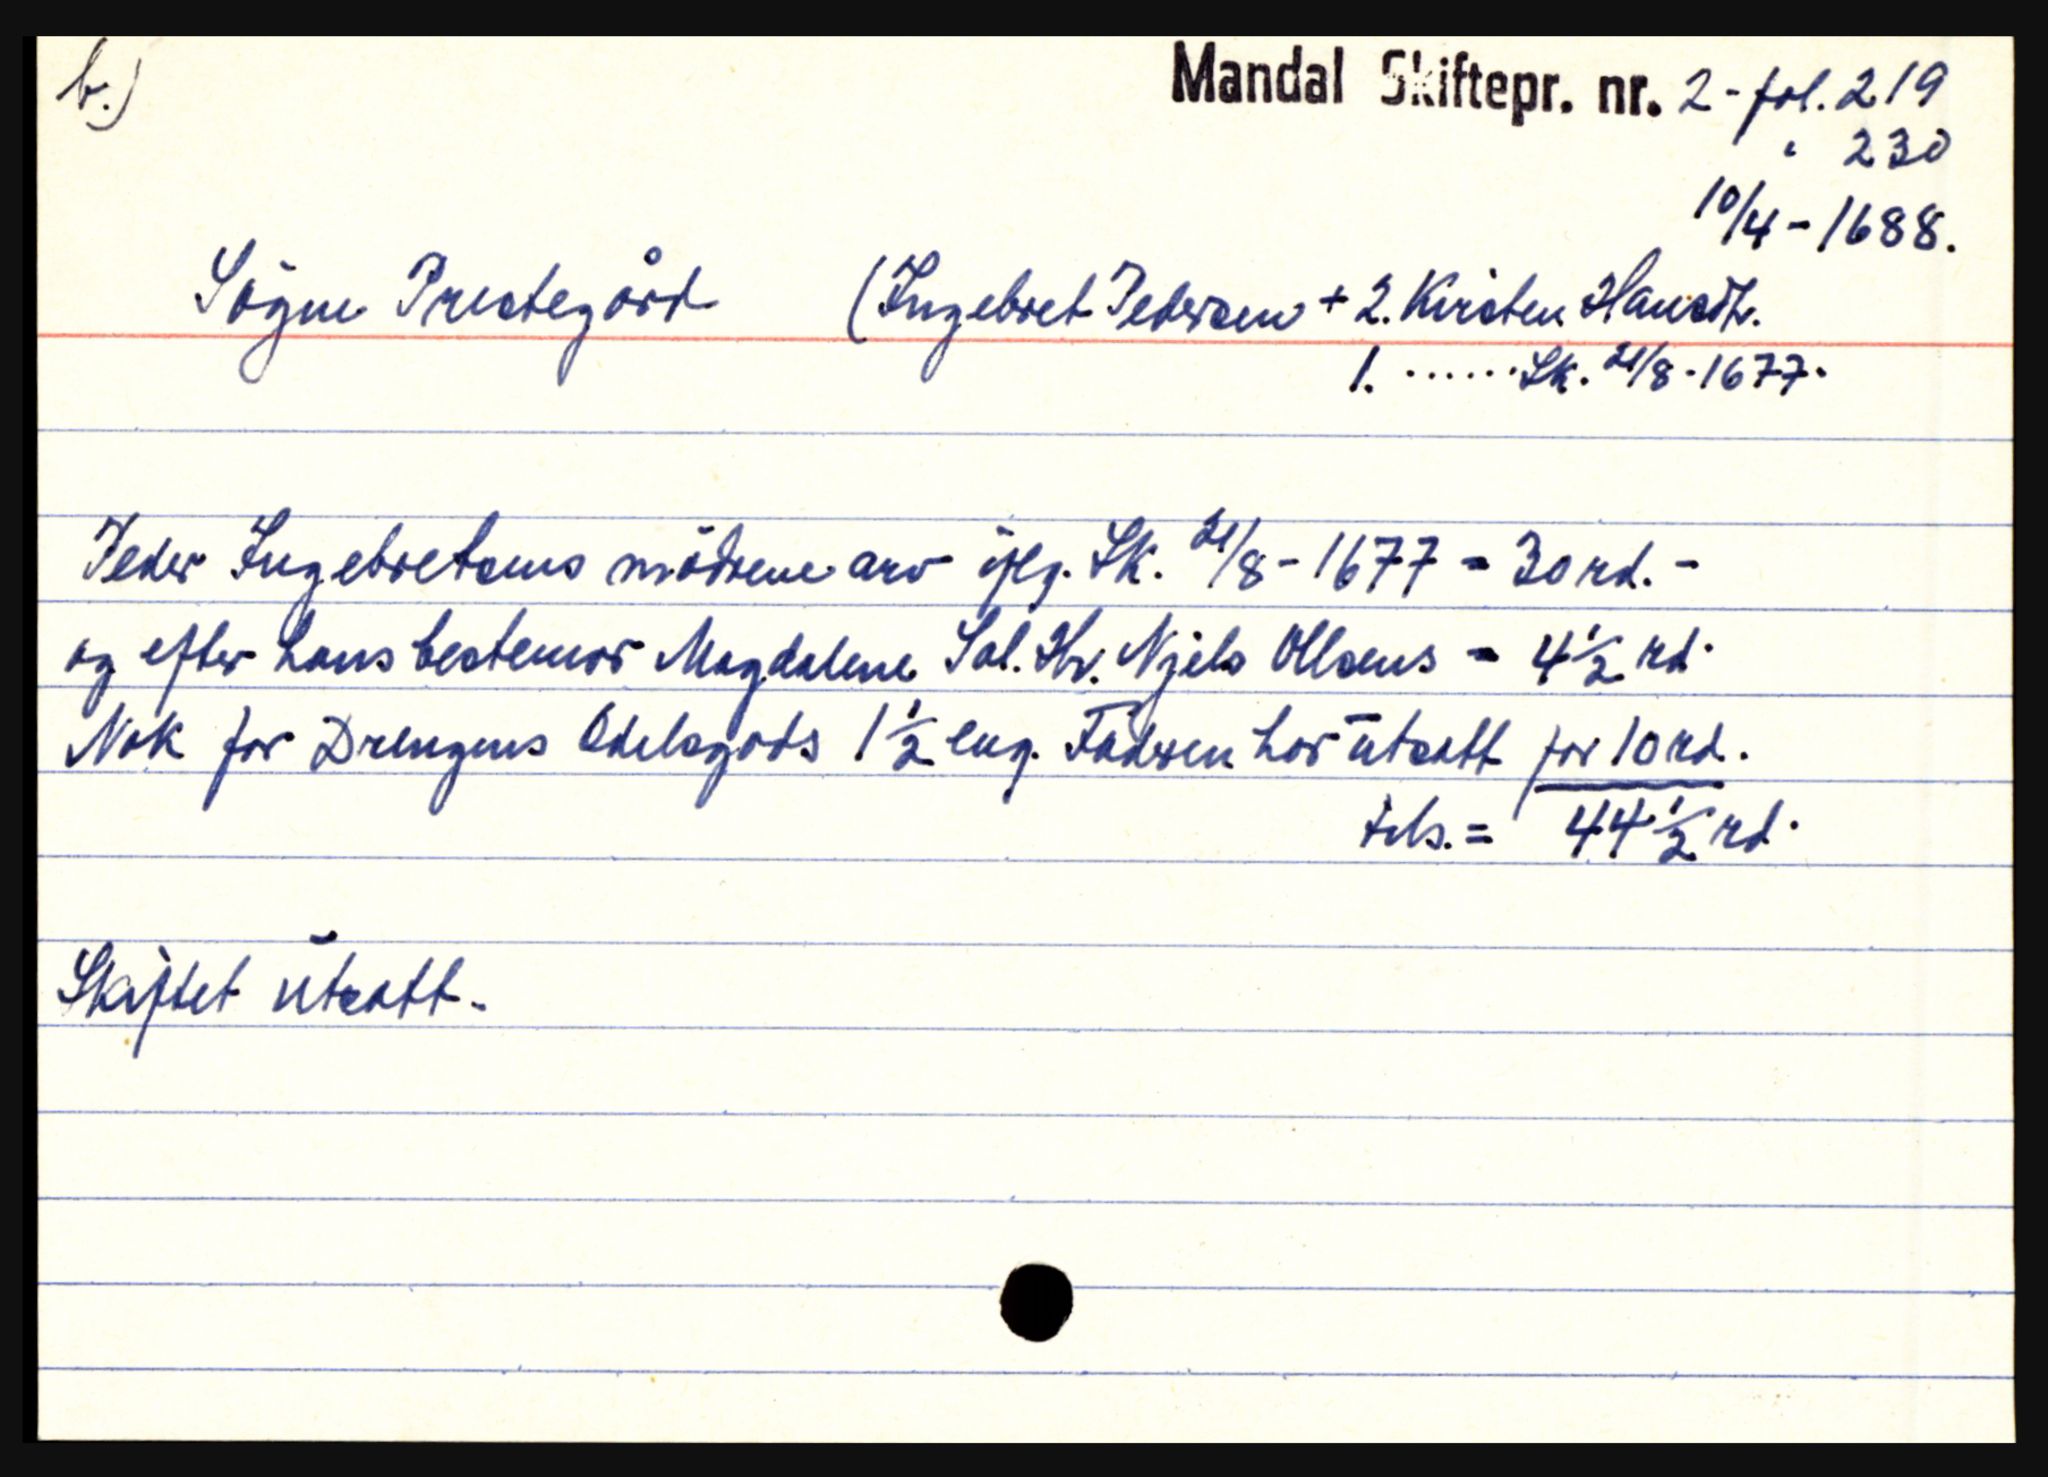 b.)
Mandal Skiftepr. nr. 2 - fol. 219
" 230
10/4 - 1688.
Sögne Prestegård (Ingebret Pedersen + 2. Kirsten Hansdtr.
1. ...... Sk. 21/8 - 1677.
Peder Ingebretsens mödrene arv iflg. Sk. 21/8 - 1677 = 30 rd. -
og efter hans bestemor Magdalene Sal. Hr. Njels Ollsens = 4 1/2 rd.
Nok for Drengens Odelsgods 1 1/2 eng. Fadren har utsatt for 10 rd.
tils. = 44 1/2 rd.
Skiftet utsatt.